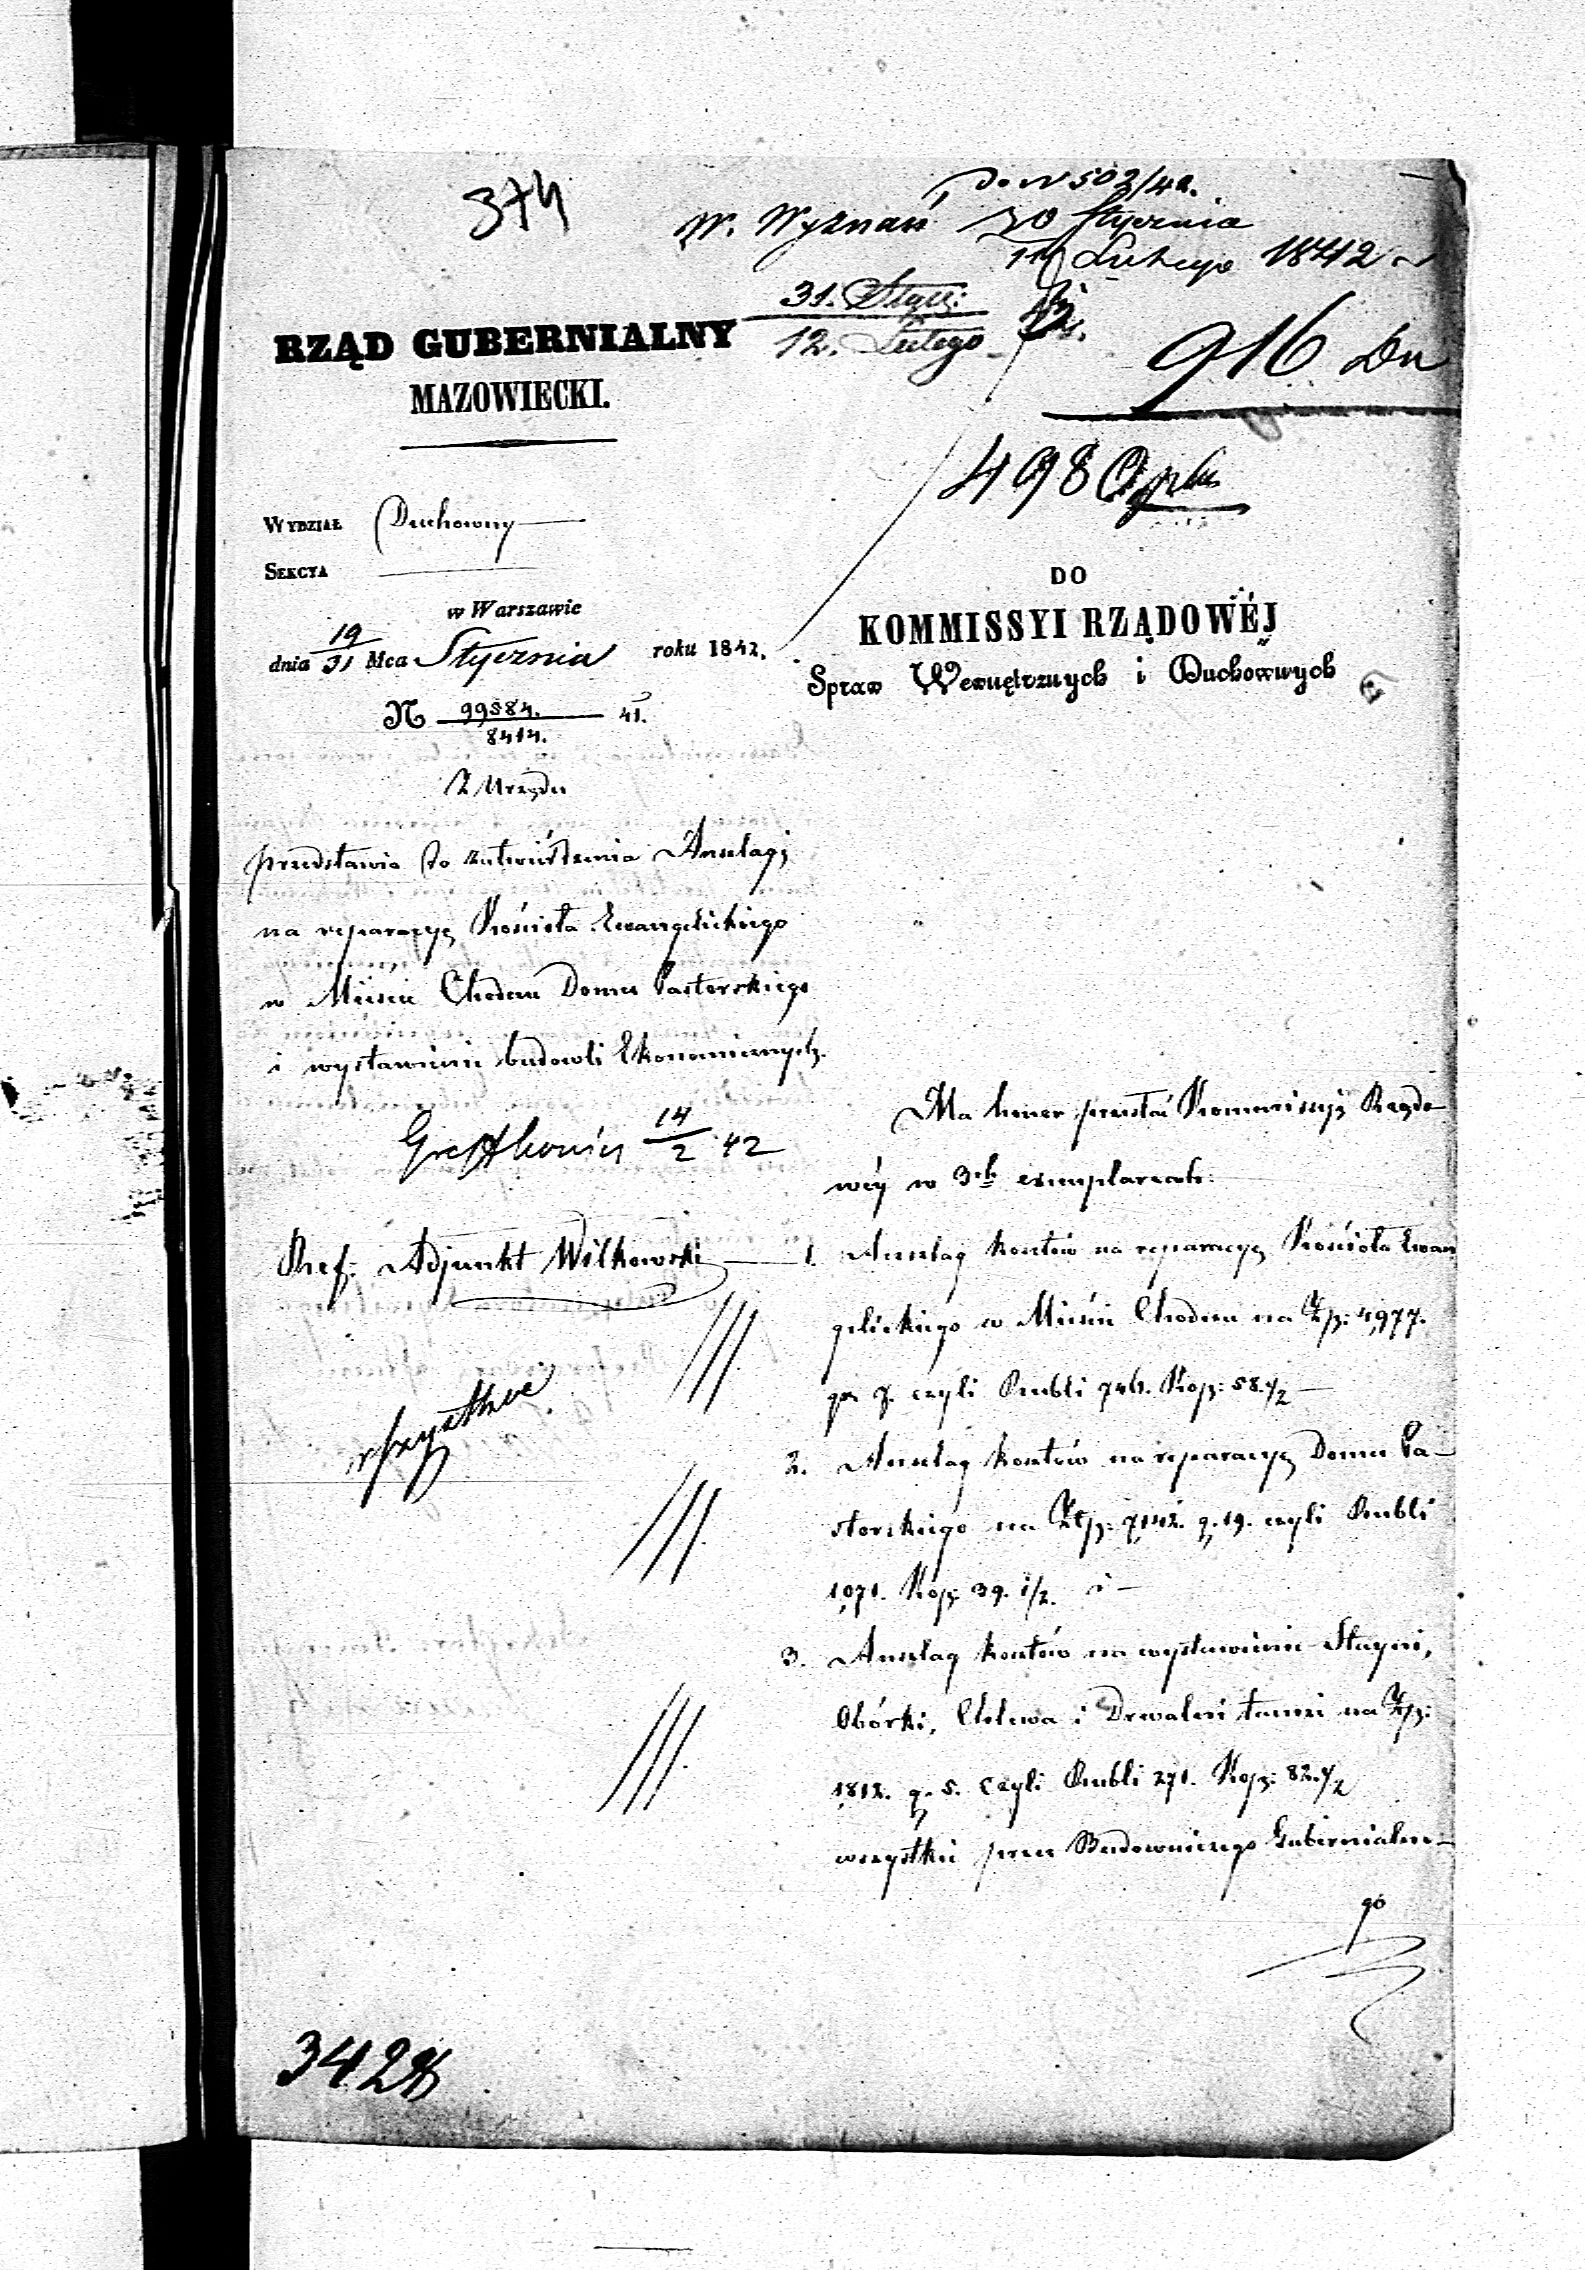 374
do N 502/42.
W. Wyznań 30 Stycznia
11 Lutego 1842
31. Stycz:
12. Lutego
916 Du
498
RZĄD GUBERNIALNY
MAZOWIECKI.
WYDZIAŁ Duchowny
SEKCYA
w Warszawie
dnia 19/31 Mca Stycznia roku 1842.
N 99584./8414. 41.
Z Urzędu
przedstawia do zatwierdzenia Anszlagi
na reparacyę Kościoła Ewangelickiego
w Mieście Chodczu Domu Pastorskiego
i wystawienie budowli Ekonomicznych.
14/2 42
Ref: Adjunkt Wilkowski
DO
KOMMISSYI RZĄDOWÉJ
Spraw Wewnętrznych i Duchownych
Ma honor przesłać Kommissyi Rządo-
wéy w 3ch exemplarzach:
1. Anszlag kosztów na reparacyę Kościoła Ewan
gelickiego w Mieście Chodczu na Złp: 4,977.
gr 7. czyli Rubli 746. Kop: 58.1/2
2. Anszlag kosztów na reparacyę Domu Pa-
storskiego na Złp: 7,142. g. 19. czyli Rubli
1,071. Kop: 39. 1/2. i
3. Anszlag kosztów na wystawienie Stayni,
Obórki, Chlewa i Drwalni tamże na Złp:
1,812. g. 5. czyli Rubli 271. Kop: 82.1/2
wszystkie przez Budowniczego Gubernialne-
go
3428